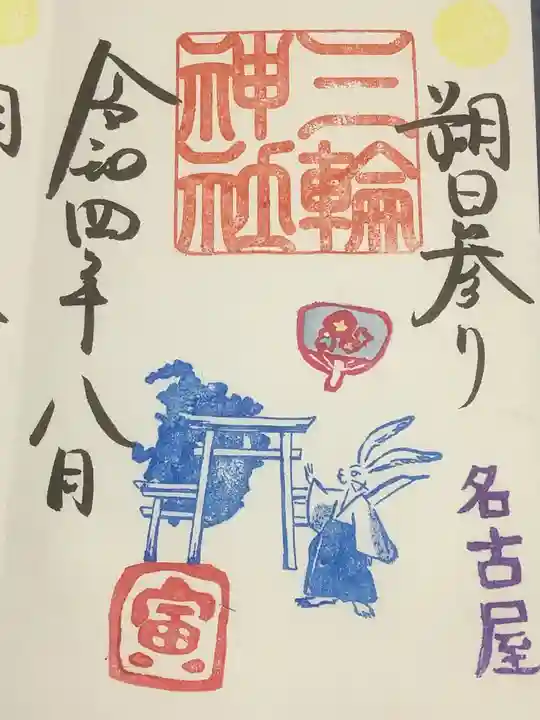 朔日参り
名古屋
三輪
神社
令和四年八月
寅